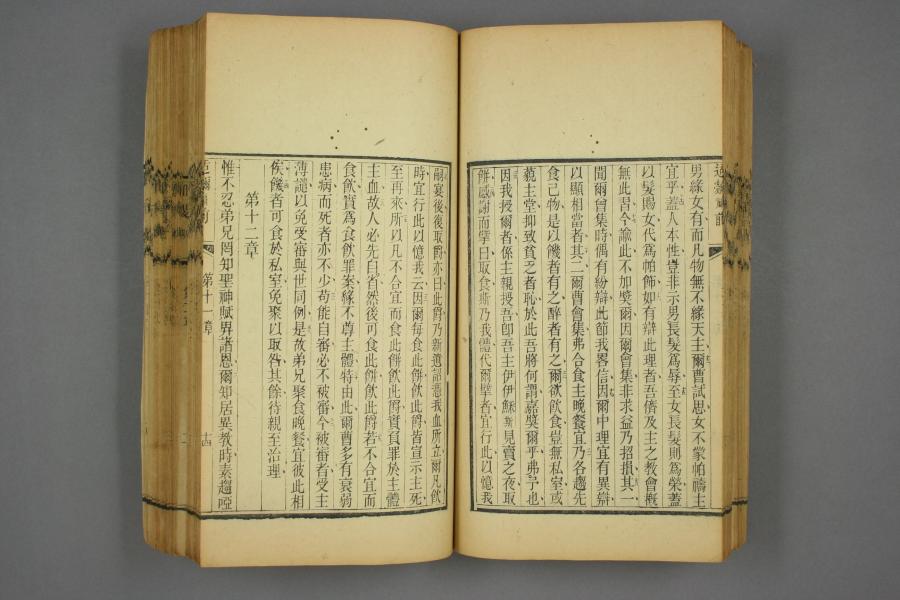 男緣女有而凡物無不緣天主爾曹試思女不蒙帕禱主
宜乎蓋人本性豈非示男長髮為辱至女長髮則為榮蓋
以髮賜女代為帕飾如有辯此理者吾儕及主之教會概
無此習今諭此不加獎爾因爾會集非求益乃招損其一
聞爾會集時偶有紛辯此節我畧信因爾中理宜有異辯
以顯相當者其二爾曹會集弗合食主晚餐宜乃各趨先
食己物是以饑者有之醉者有之爾欲飲食豈無私室或
藐主堂抑致貧乏者恥於此吾將何謂嘉獎爾乎弗予也
因我授爾者係主親授吾卽吾主伊伊穌斯見賣之夜取
餅感謝而擘曰取食斯乃我體代爾擘者宜行此以憶我
嗣宴後復取爵亦曰此爵乃新遺詔憑我血所立爾凡飲
時宜行此以憶我云因爾每食此餅飲此爵者宣示主死
至再來所以凡不合宜而食此餅飲此爵實負罪於主體
主血故人必先自省然後可食此餅飲此爵若不合宜而
食飲實為食飲罪案緣不尊主體特由此爾曹多有衰弱
患病而死者亦不少苟能自審必不被審今被審者受主
薄譴以免受審與世同例是故弟兄聚食晚餐宜彼此相
俟饑者可食於私室免聚以取咎其餘待親至治理
第十二章
惟不忍弟兄罔知聖神賦畀諸恩爾知居異教時素趨啞
第十一章